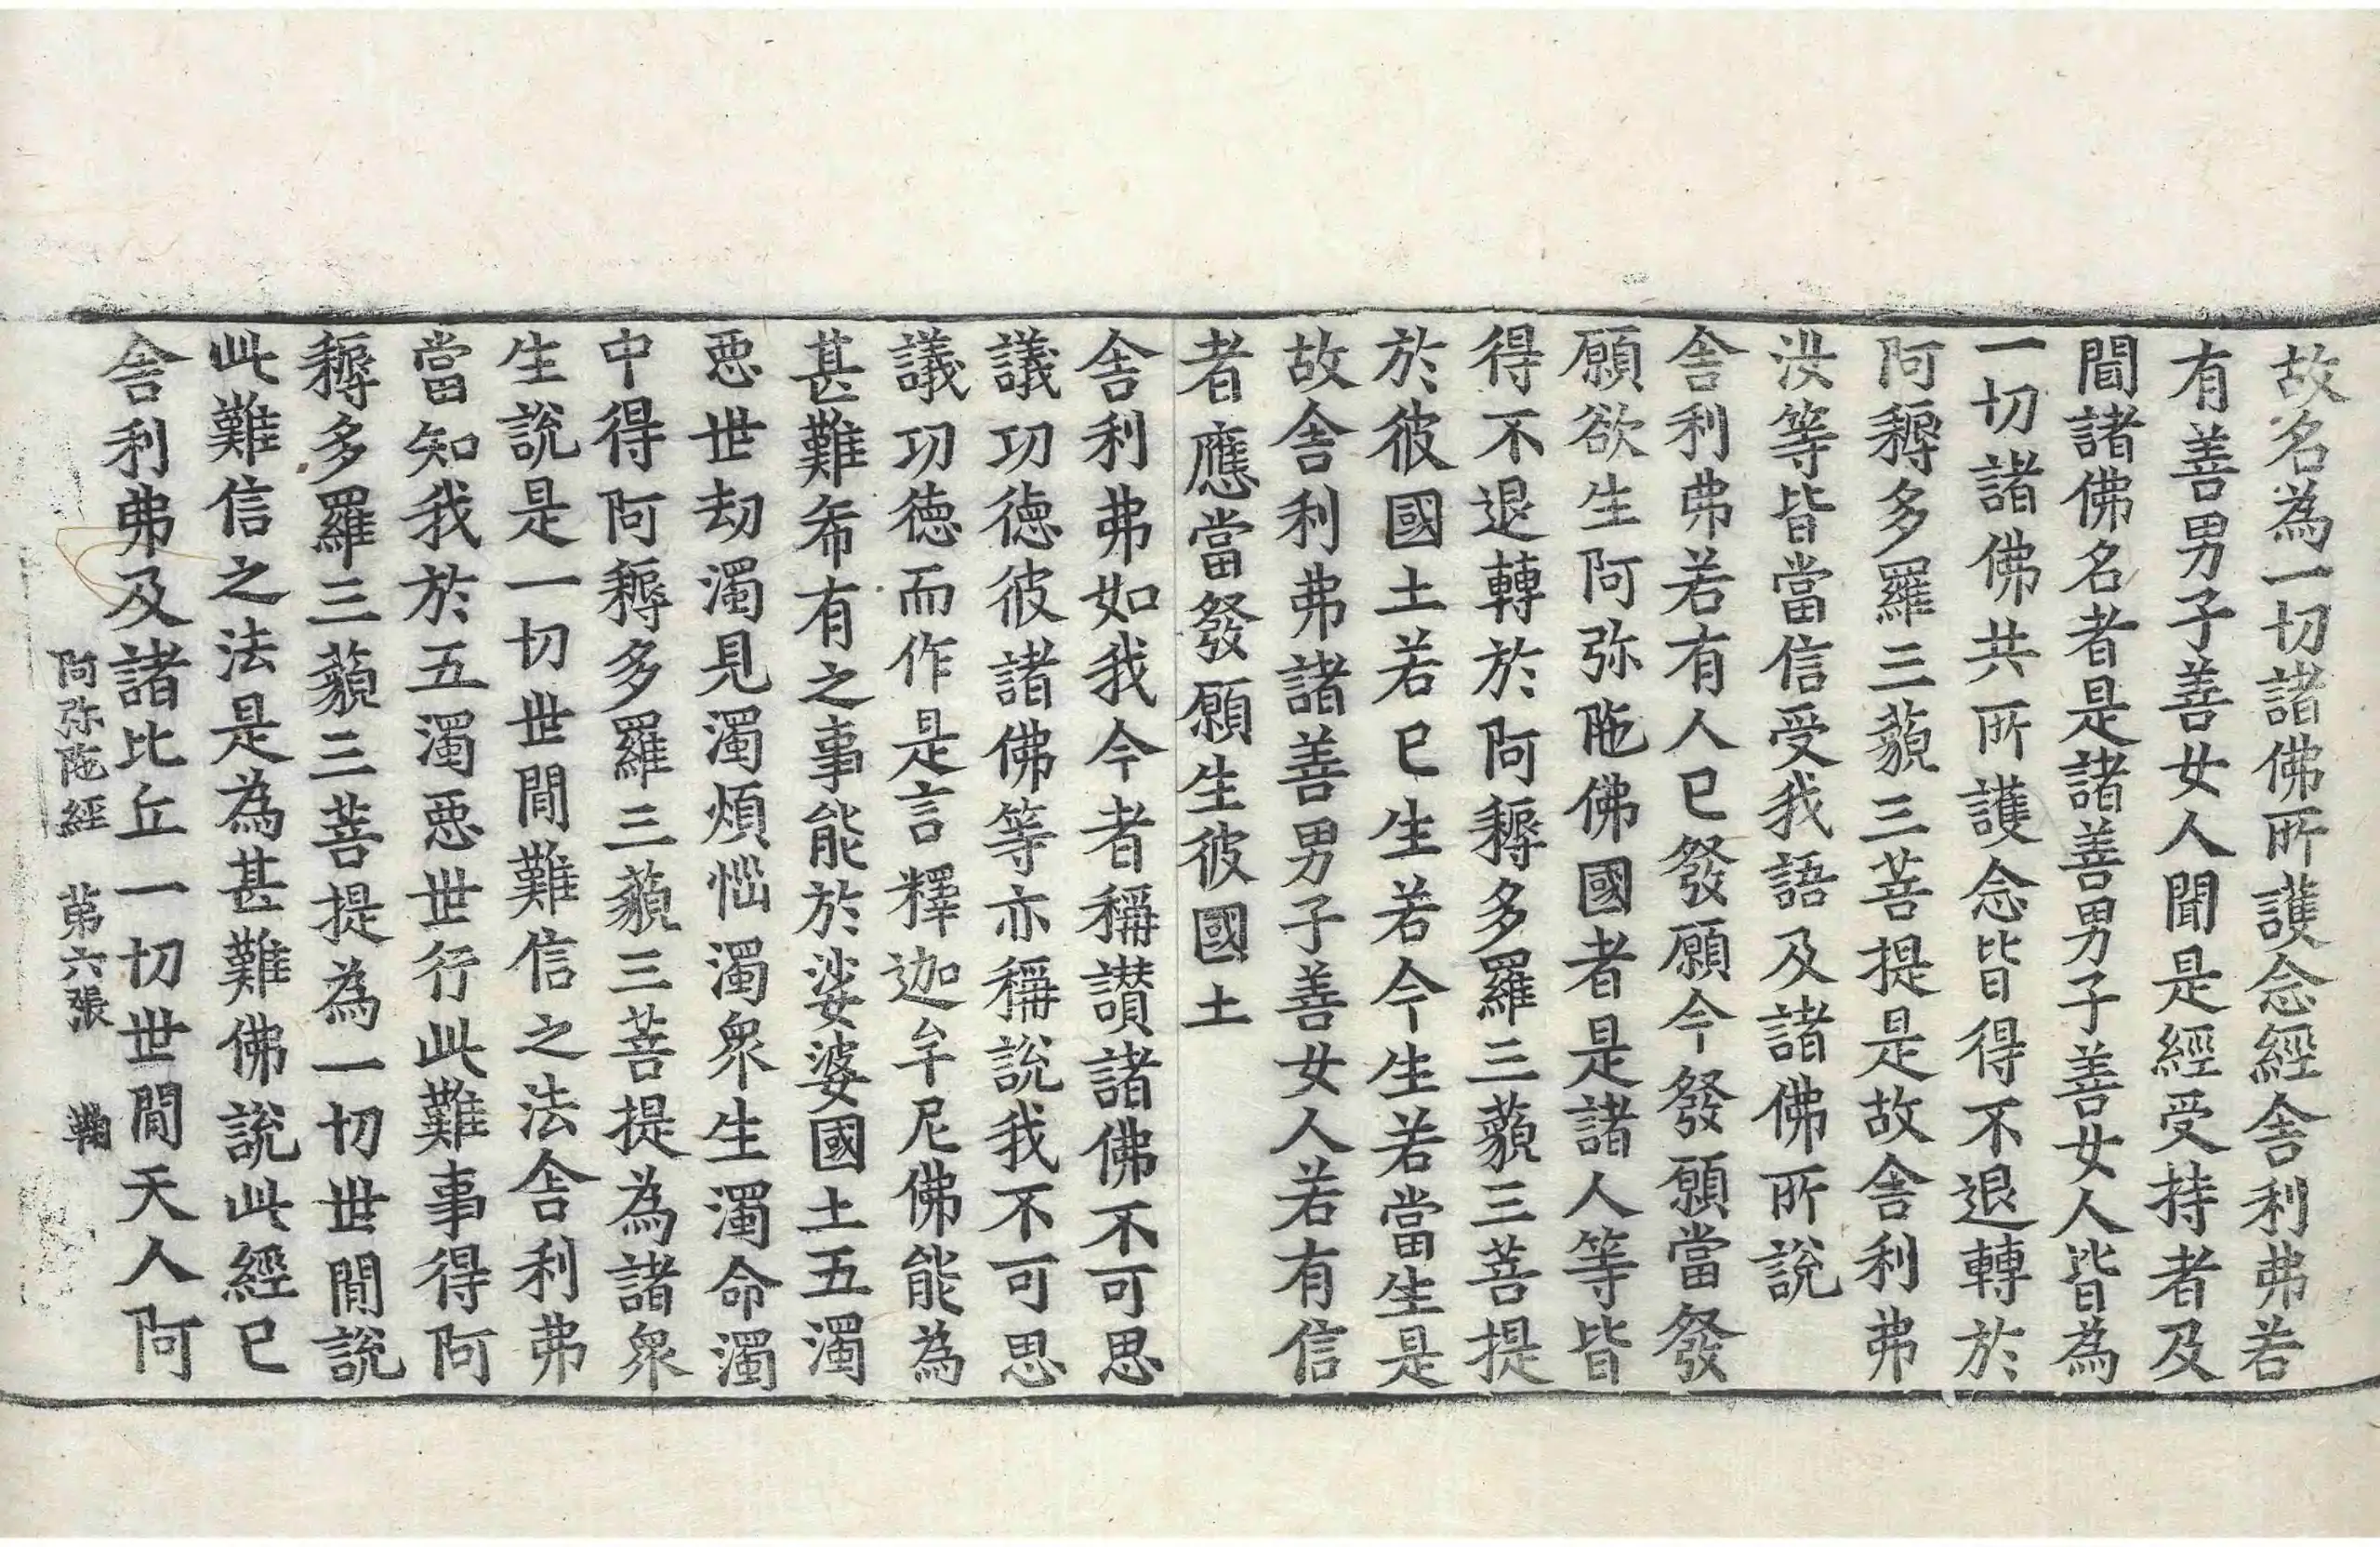 故名為一切諸佛所護念經舎利弗若
有善男子善女人聞是經受持者及
聞諸佛名者是諸善男子善女人皆為
一切諸佛共所護念皆得不退轉於
阿耨多羅三藐三菩提是故舎利弗
汝等皆當信受我語及諸佛所說
舎利弗若有人已發願今發願當發
願欲生阿弥陁佛國者是諸人等皆
得不退轉於阿耨多羅三藐三菩提
於彼國土若已生若今生若當生是
故舎利弗諸善男子善女人若有信
者應當發願生彼國土
舎利弗如我今者稱讃諸佛不可思
議功德彼諸佛等亦稱說我不可思
議功德而作是言釋迦牟尼佛能為
甚難希有之事能於娑婆國土五濁
惡世劫濁見濁煩惱濁衆生濁命濁
中得阿耨多羅三藐三菩提為諸衆
生說是一切世間難信之法舎利弗
當知我於五濁惡世行此難事得阿
耨多羅三藐三菩提為一切世間說
此難信之法是為甚難佛說此經已
舎利弗及諸比丘一切世間天人阿
阿弥陁經 第六張 鞠